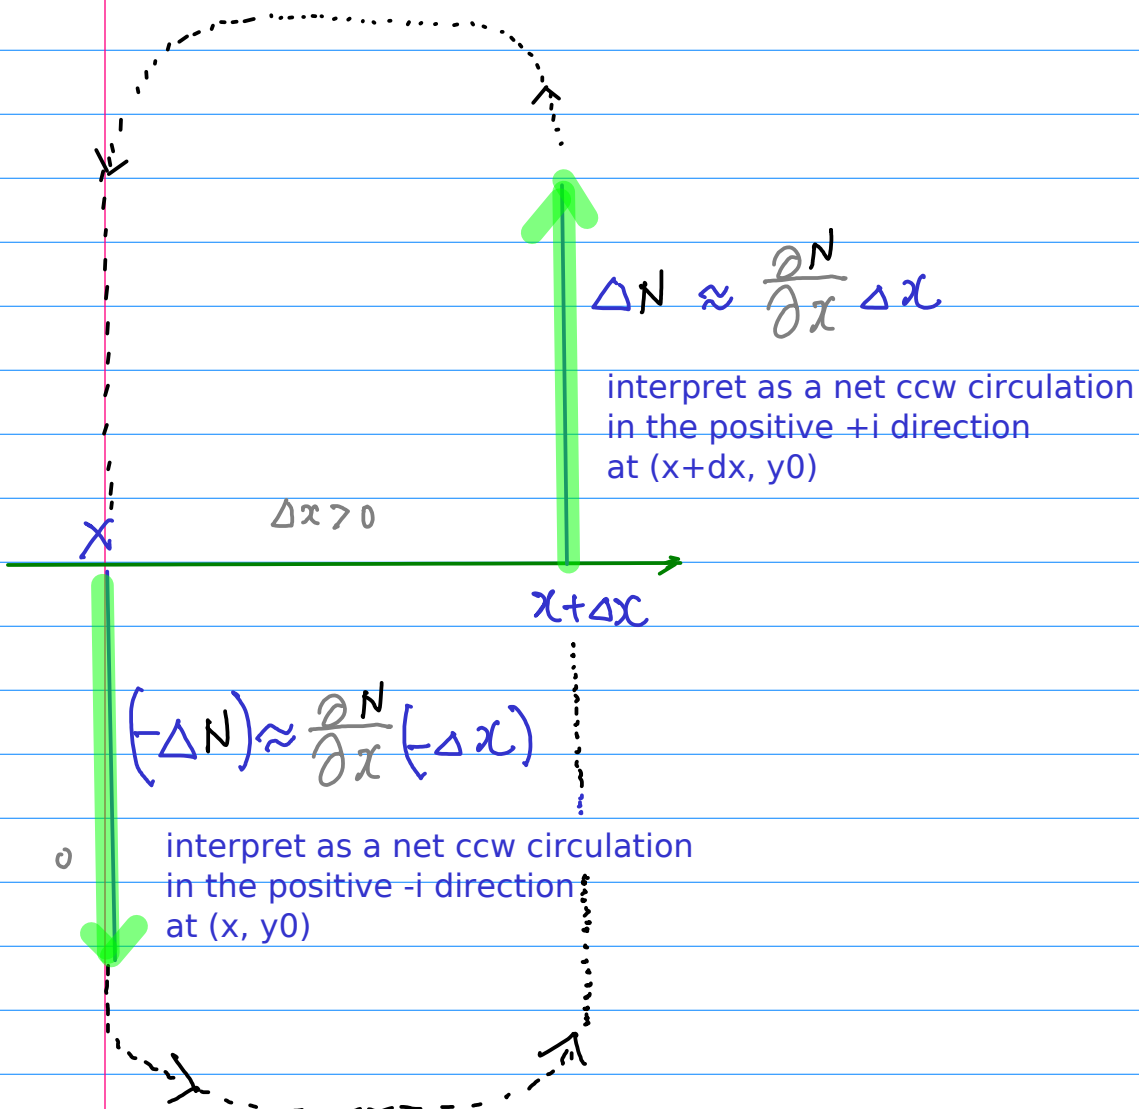 ΔN ≈ ∂N/∂x Δx
interpret as a net ccw circulation
in the positive +i direction
at (x+dx, y0)
Δx > 0
x
x+Δx
(-ΔN) ≈ ∂N/∂x (-Δx)
interpret as a net ccw circulation
0
in the positive -i direction
at (x, y0)